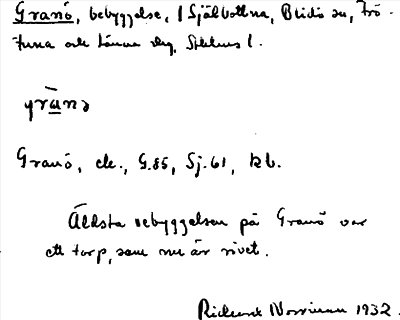 Granö, bebyggelse, / Själbottna, Blidö sn, Frö-
tuna och Länna skg, Sthlms l.
gränə
Granö, ek., G.85, Sj.61, kb.
Äldsta bebyggelsen på Granö var
ett torp, som nu är rivet.
Rickard Norrman 1932.